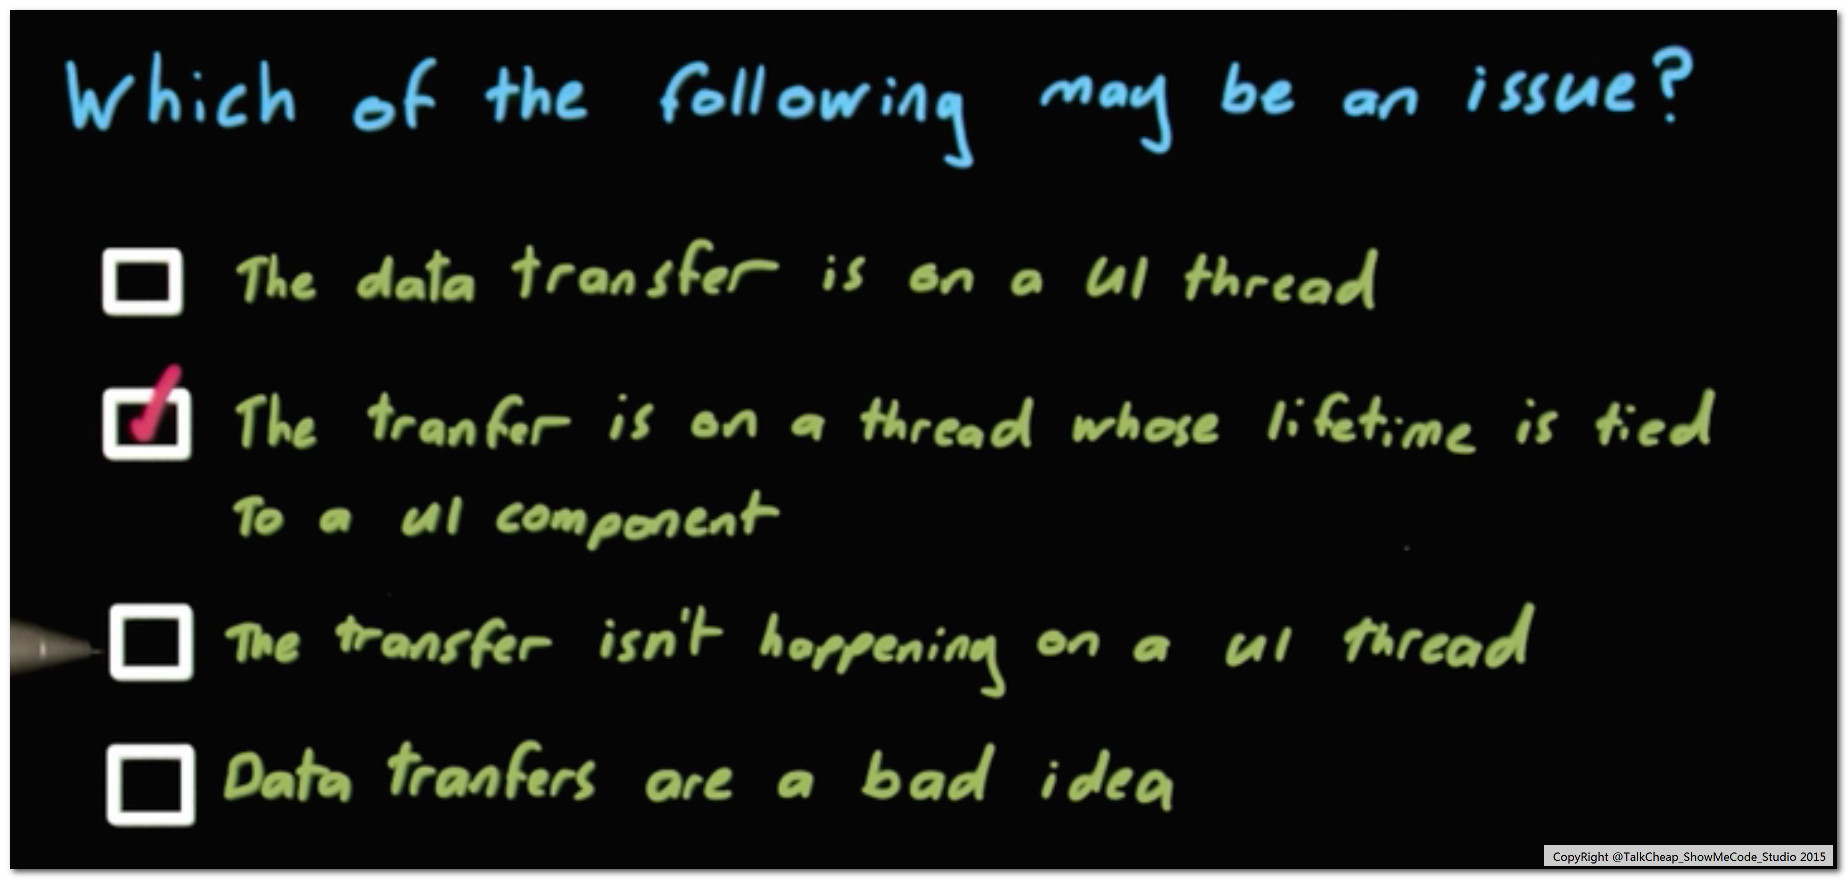 Which of the following may be an issue?
The data transfer is on a UI thread
The tranfer is on a thread whose lifetime is tied
To a UI component
The transfer isn't happening on a UI thread
Data tranfers are a bad idea
CopyRight @TalkCheap_ShowMeCode_Studio 2015